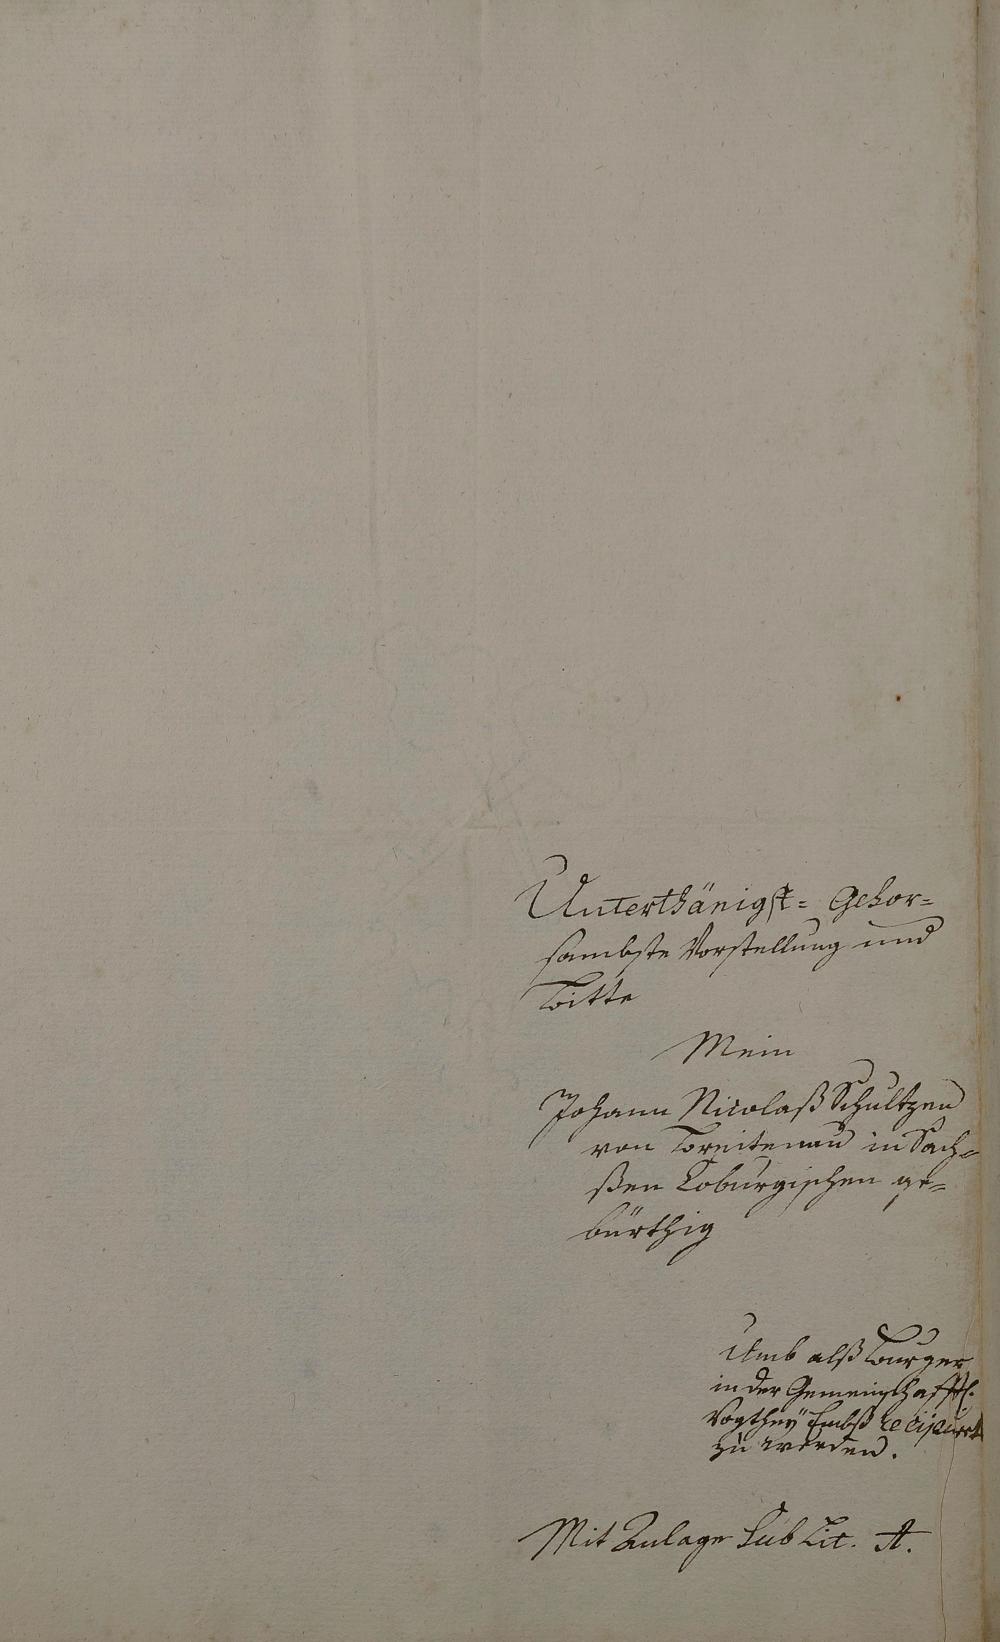 Unterthänigst= Gehor=
sambste Vorstellung und
Bitte
Mein
Johann Nicolaß Schultzen
von Breitenau in Sach=
ßen Coburgischen ge=
bürthig
Umb alß Burger
in der Gemeinschafftl.
Vogthey Embß recipirt
zu werden.
Mit Anlage Sub Lit. A.